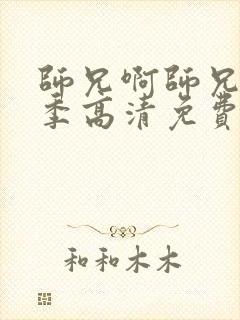 師兄啊師兄
季高清免費
和和木木